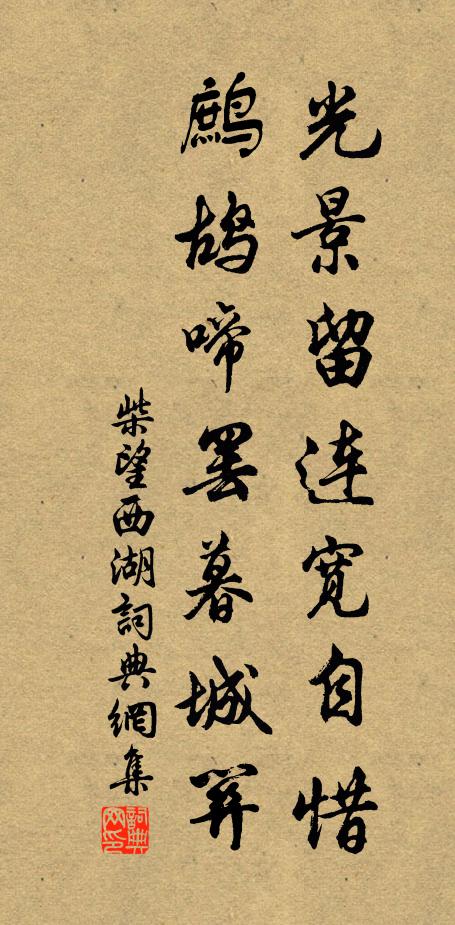 光景留連寬自惜
鷓鴣啼罷暮城
柴望西湖詞典網集
詞典
網印